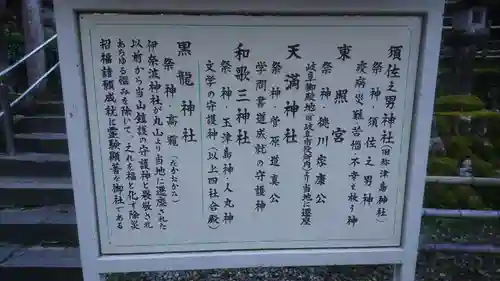 須佐之男神社（旧称津島神社）
祭神・須佐之男神
疫病災難苦悩不幸を枕う神
東照宮
祭神・徳川家康公
岐阜御殿地（旧岐阜市役所辺り）より当地に遷座
天満神社
祭神・菅原道真公
学問書道成就の守護神
和歌三神社
祭神・玉津島神・人丸神
文学の守護神（以上四社合殿）
黒龍神社
祭神・高龗（たかおかみ）
伊奈波神社が丸山より当地に遷座された
以前から当山鎮護の守護神と畏敬され
あらゆる悩みを除いて、之れを福と化す除災
招福諸願成就に霊験顕著な御社である